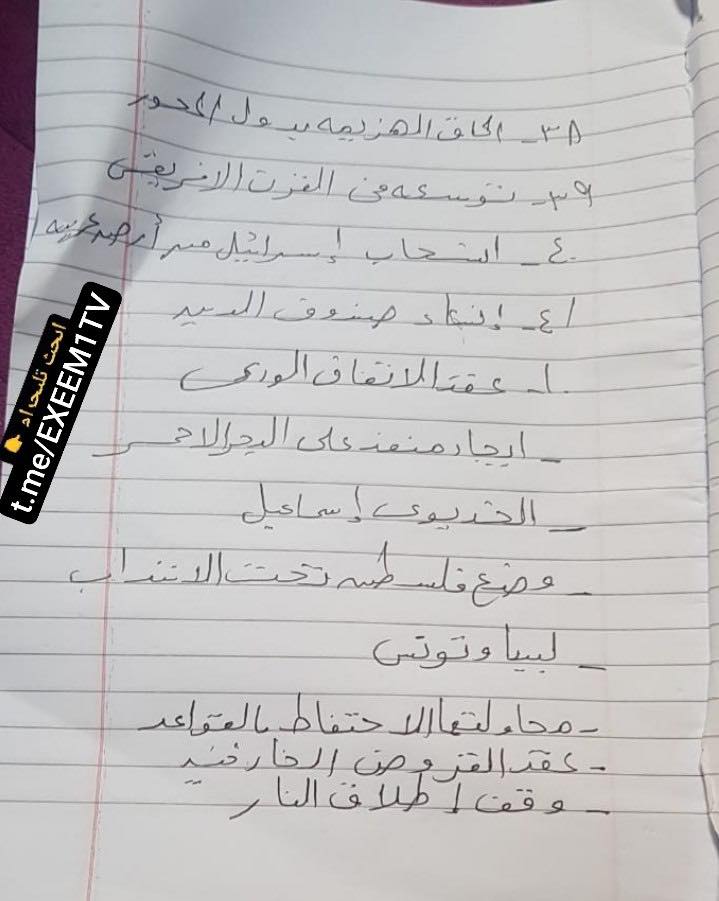 ٣٨- الحاق الهزيمه بدول المحور
٣٩- توسعه في القرن الافريقي
٤٠- انسحاب إسرائيل من أرض عربيه
٤١- إنشاء صندوق الدين
١- عقد الاتفاق الودي
- ايجاد منفذ على البحر الاحمر
- الخديوي إسماعيل
- وضع فلسطين تحت الانتداب
- ليبيا وتونس
- محاولتها الاحتفاظ بالقواعد
- عقد القروض الخارجيه
- وقف إطلاق النار
ابحث تليجرام 👉
t.me/EXEEM1TV